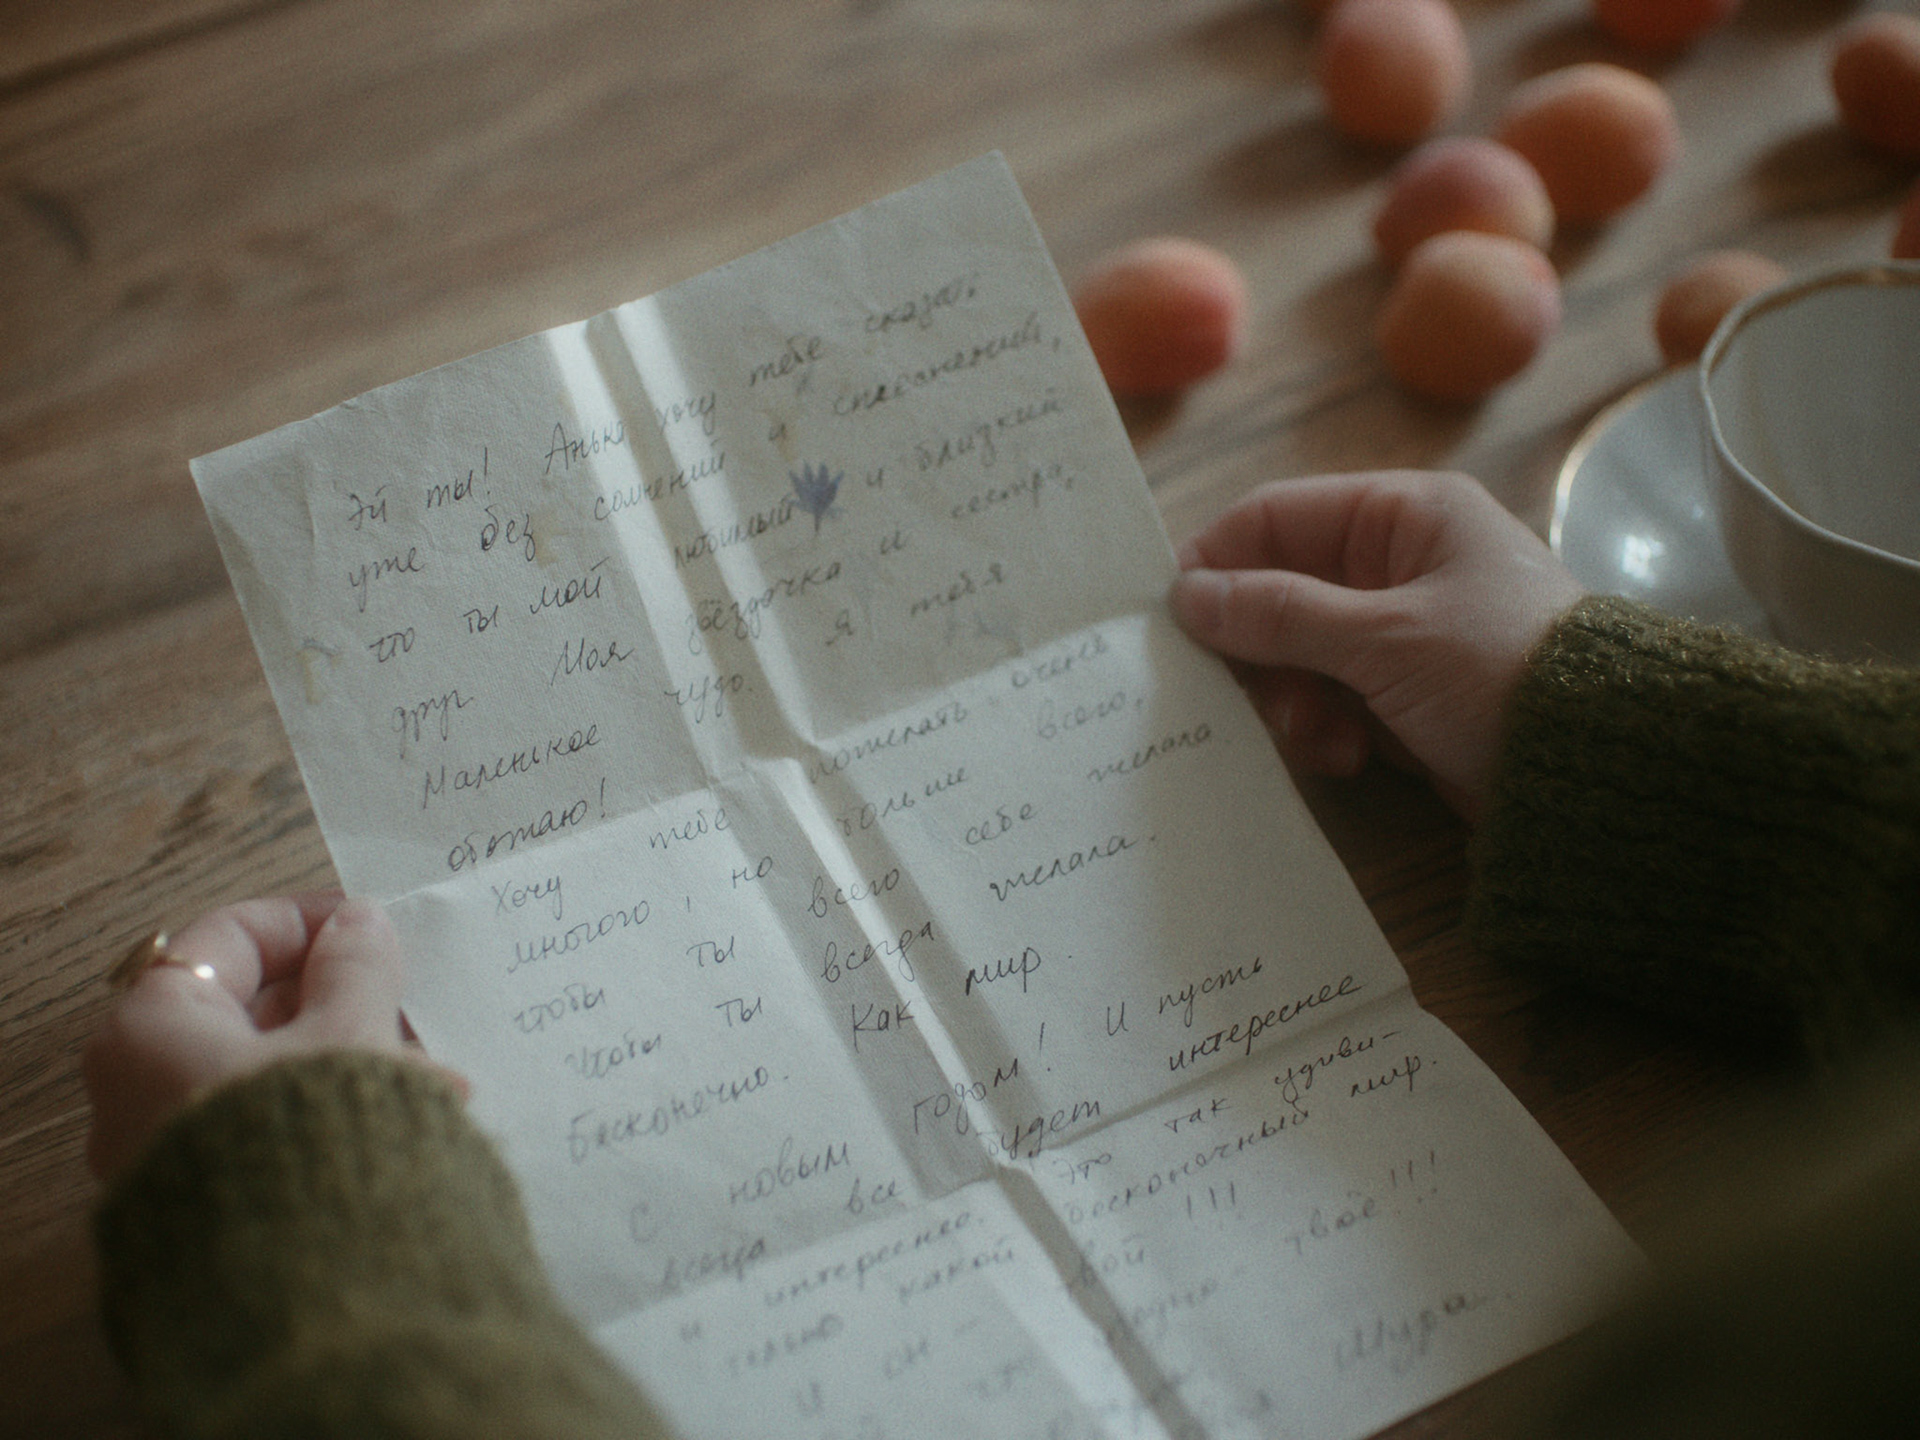 Эй ты! Анька хочу тебе сказать
уже без сомнений и стеснений,
что ты мой любимый и близкий
друг. Моя звёздочка и сестра,
Маленькое чудо. Я тебя
обожаю!
Хочу тебе пожелать очень
много, но только всего,
чтобы ты всего себе желала
Чтобы ты всегда желала.
Бесконечно. Как мир.
С новым годом! И пусть
всегда все будет интереснее
и интереснее. Это так удиви-
только какой бесконечный мир.
И он - твой !!!
твоё!!!
Шура.